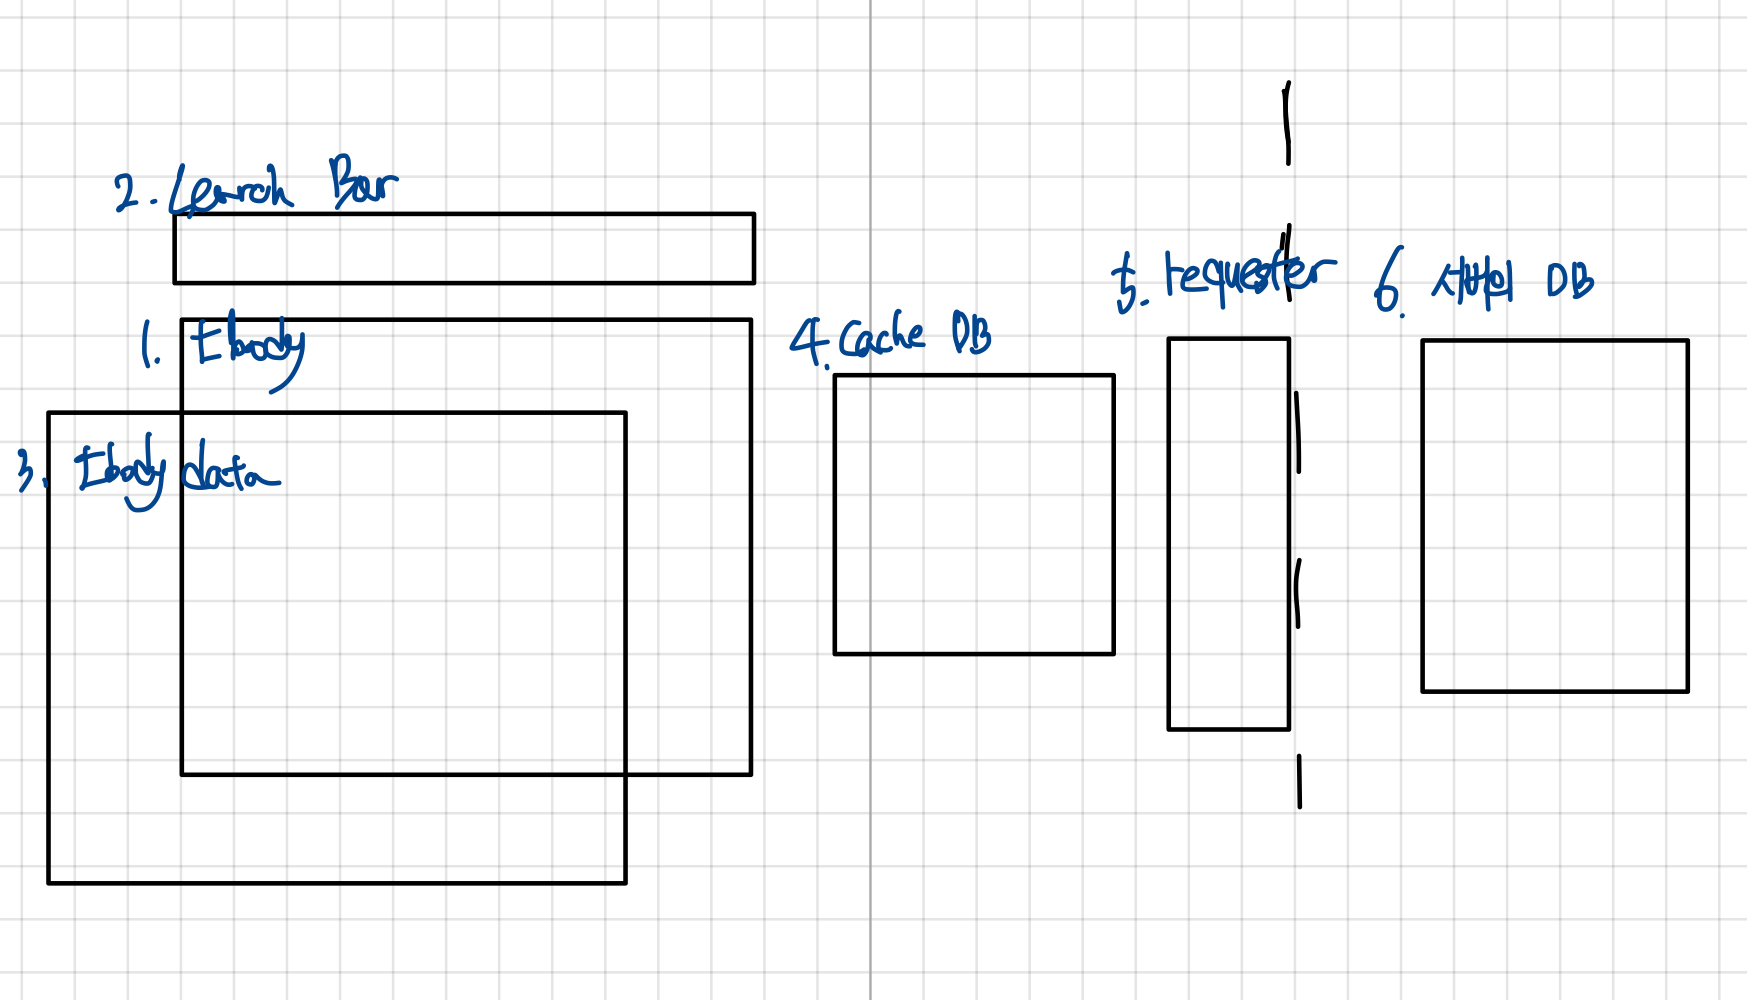 2. Search Bar
1. Ebody
3. Ebody data
4. Cache DB
5. requester
6. 서버 DB